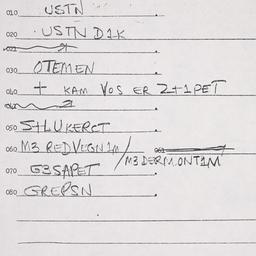 010 USTN
020 · USTN D1K
021
030 OTEMEN
040 + KAM VOS ER 2+1PET
050 S+LUKERCT
060 M3 REDVUGN 1M / 061
M3 DERM.ONT1M
070 G3SAPET
080 GREPSN